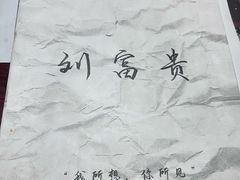 刘富贵
"我所想，你所见"